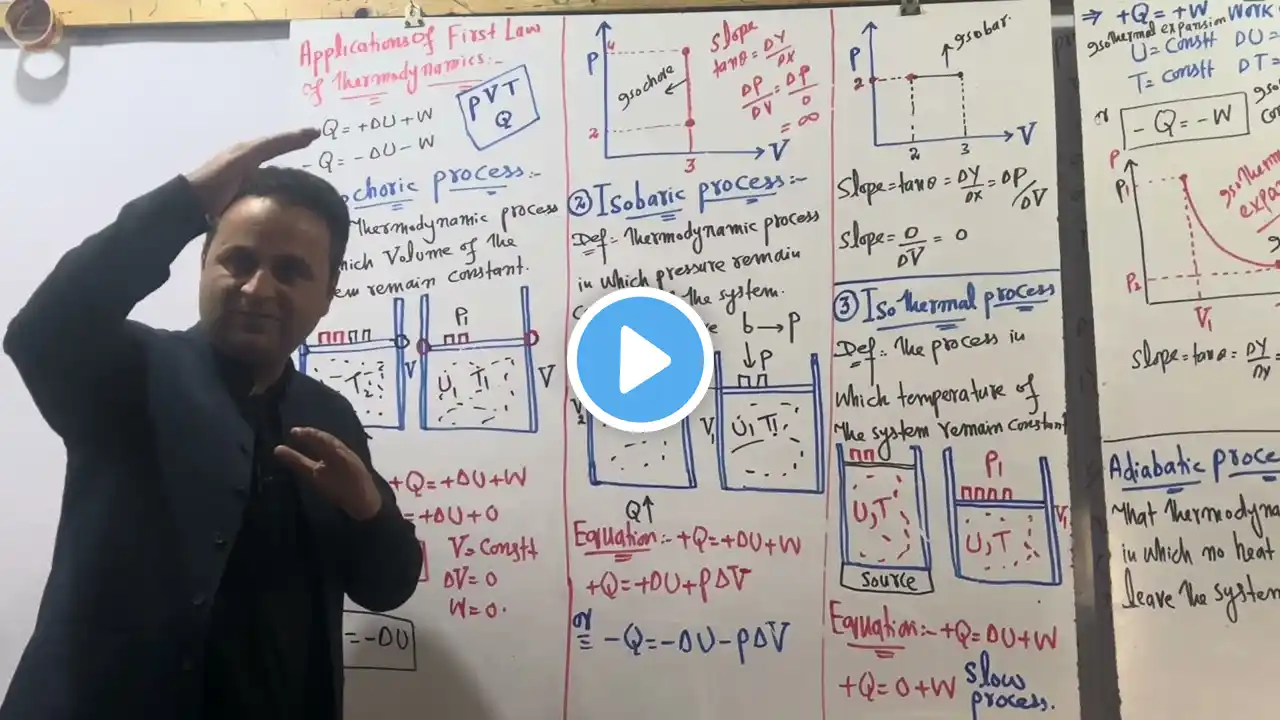 Applications of First Law
of Thermodynamics:-
PVT
Q
Q = +ΔU + W
-Q = -ΔU - W
choric process:-
Thermodynamic process
hich Volume of the
em remain constant.
T2
V
P1
U, T1
V
+Q = +ΔU + W
= +ΔU + 0
V = Constt
ΔV = 0
W = 0.
= -ΔU
P
4
2
3
V
Isochore
Slope
tanθ = ΔY/ΔX
ΔP/ΔV = ΔP/0
= ∞
② Isobaric process:-
Def:- Thermodynamic process
in which pressure remain
the system.
b → P
P
V1
U, T1
Q↑
Equation:- +Q = +ΔU + W
+Q = +ΔU + PΔV
or
-Q = -ΔU - PΔV
P
2
2
3
V
Isobar.
Slope = tanθ = ΔY/ΔX = ΔP/ΔV
Slope = 0/ΔV = 0
③ Isothermal process
Def:- The process in
which temperature of
the system remain constant
U, T
Source
P1
U, T
V1
Equation:- +Q = ΔU + W
+Q = 0 + W
Slow
process.
⇒ +Q = +W Work
Isothermal expansion
U = Constt ΔU =
T = Constt ΔT =
or
-Q = -W
P
P1
P2
V1
Isotherm
expan
Slope = tanθ = ΔY
Adiabatic proce
That Thermodyna
in which no heat
leave the system